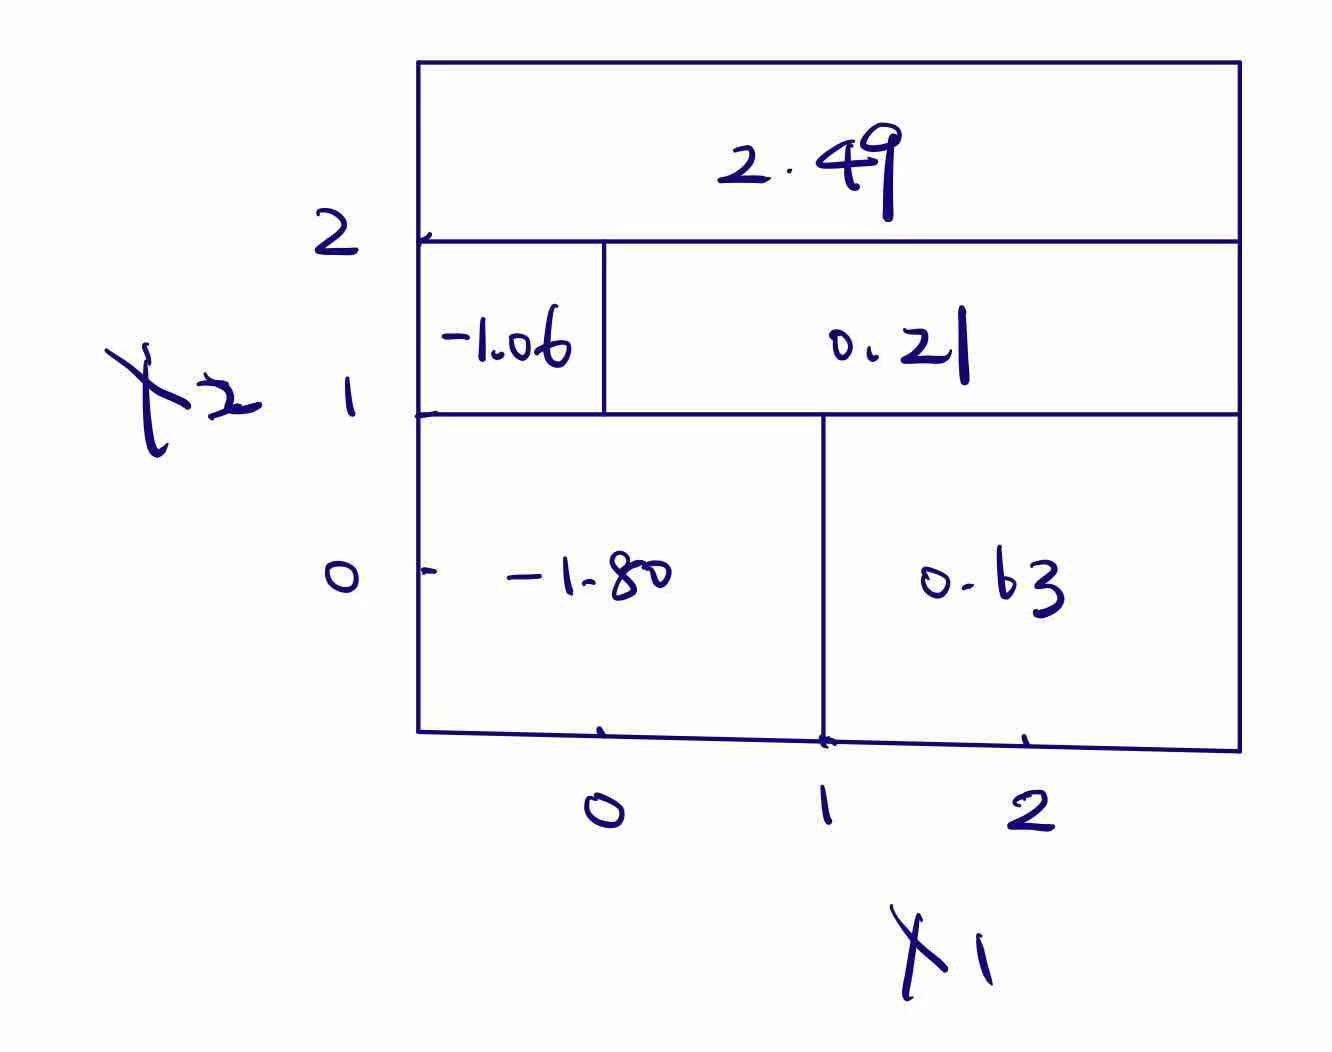 2.49
2
-1.06 0.21
X2 1
0 -1.80 0.63
0 1 2
X1